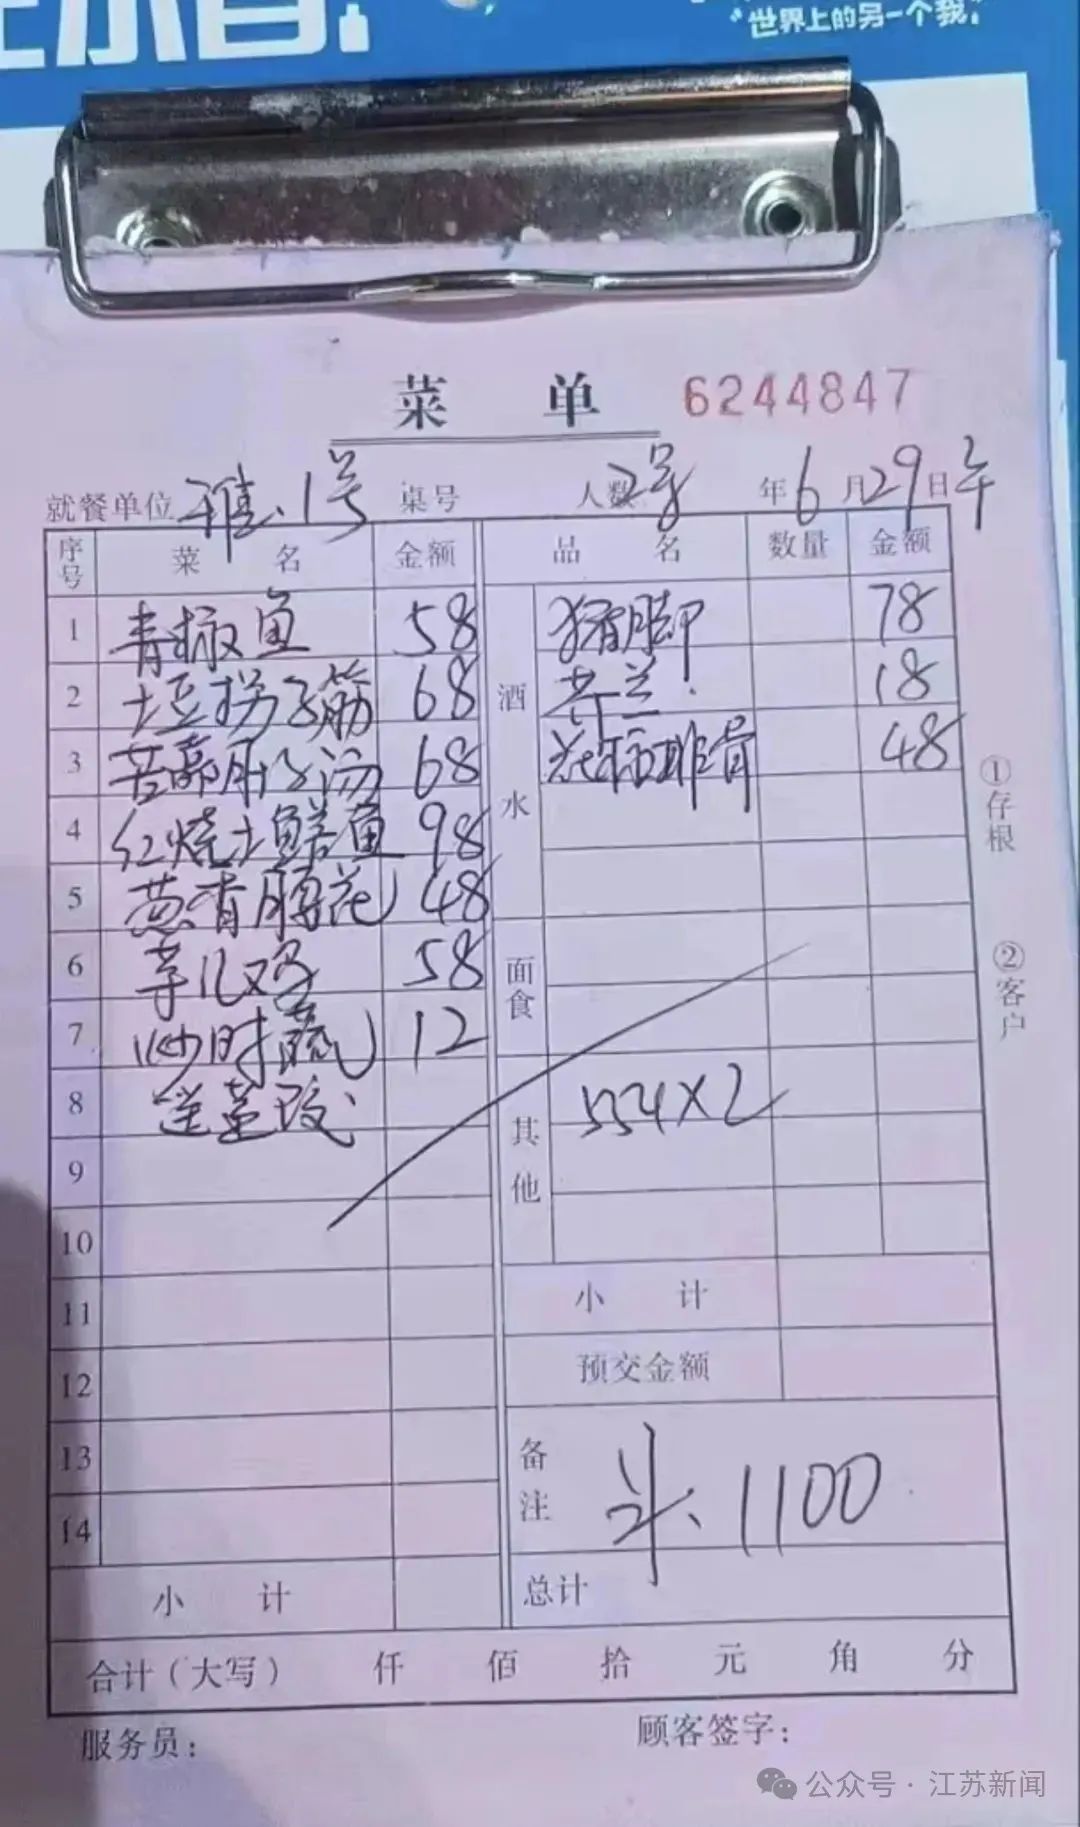 “世界上的另一个我”
菜 单 6244847
就餐单位 雅.1号 桌号 人数 2号 年6月29日午
序号 菜名 金额 品名 数量 金额
1 青椒鱼 58 猪脚 78
2 土豆拐子筋 68 芥兰 18
3 肚子汤 68 排骨 48
4 红烧土鳝鱼 98
5 葱香腰花 48
6 芋儿鸡 58
7 炒时蔬 12
8
9
10
11
12
13
14
酒水
面食
其他 554×2
小计
预交金额
备注 斗、1100
小计 总计
合计（大写） 仟 佰 拾 元 角 分
服务员： 顾客签字：
①存根
②客户
公众号·江苏新闻